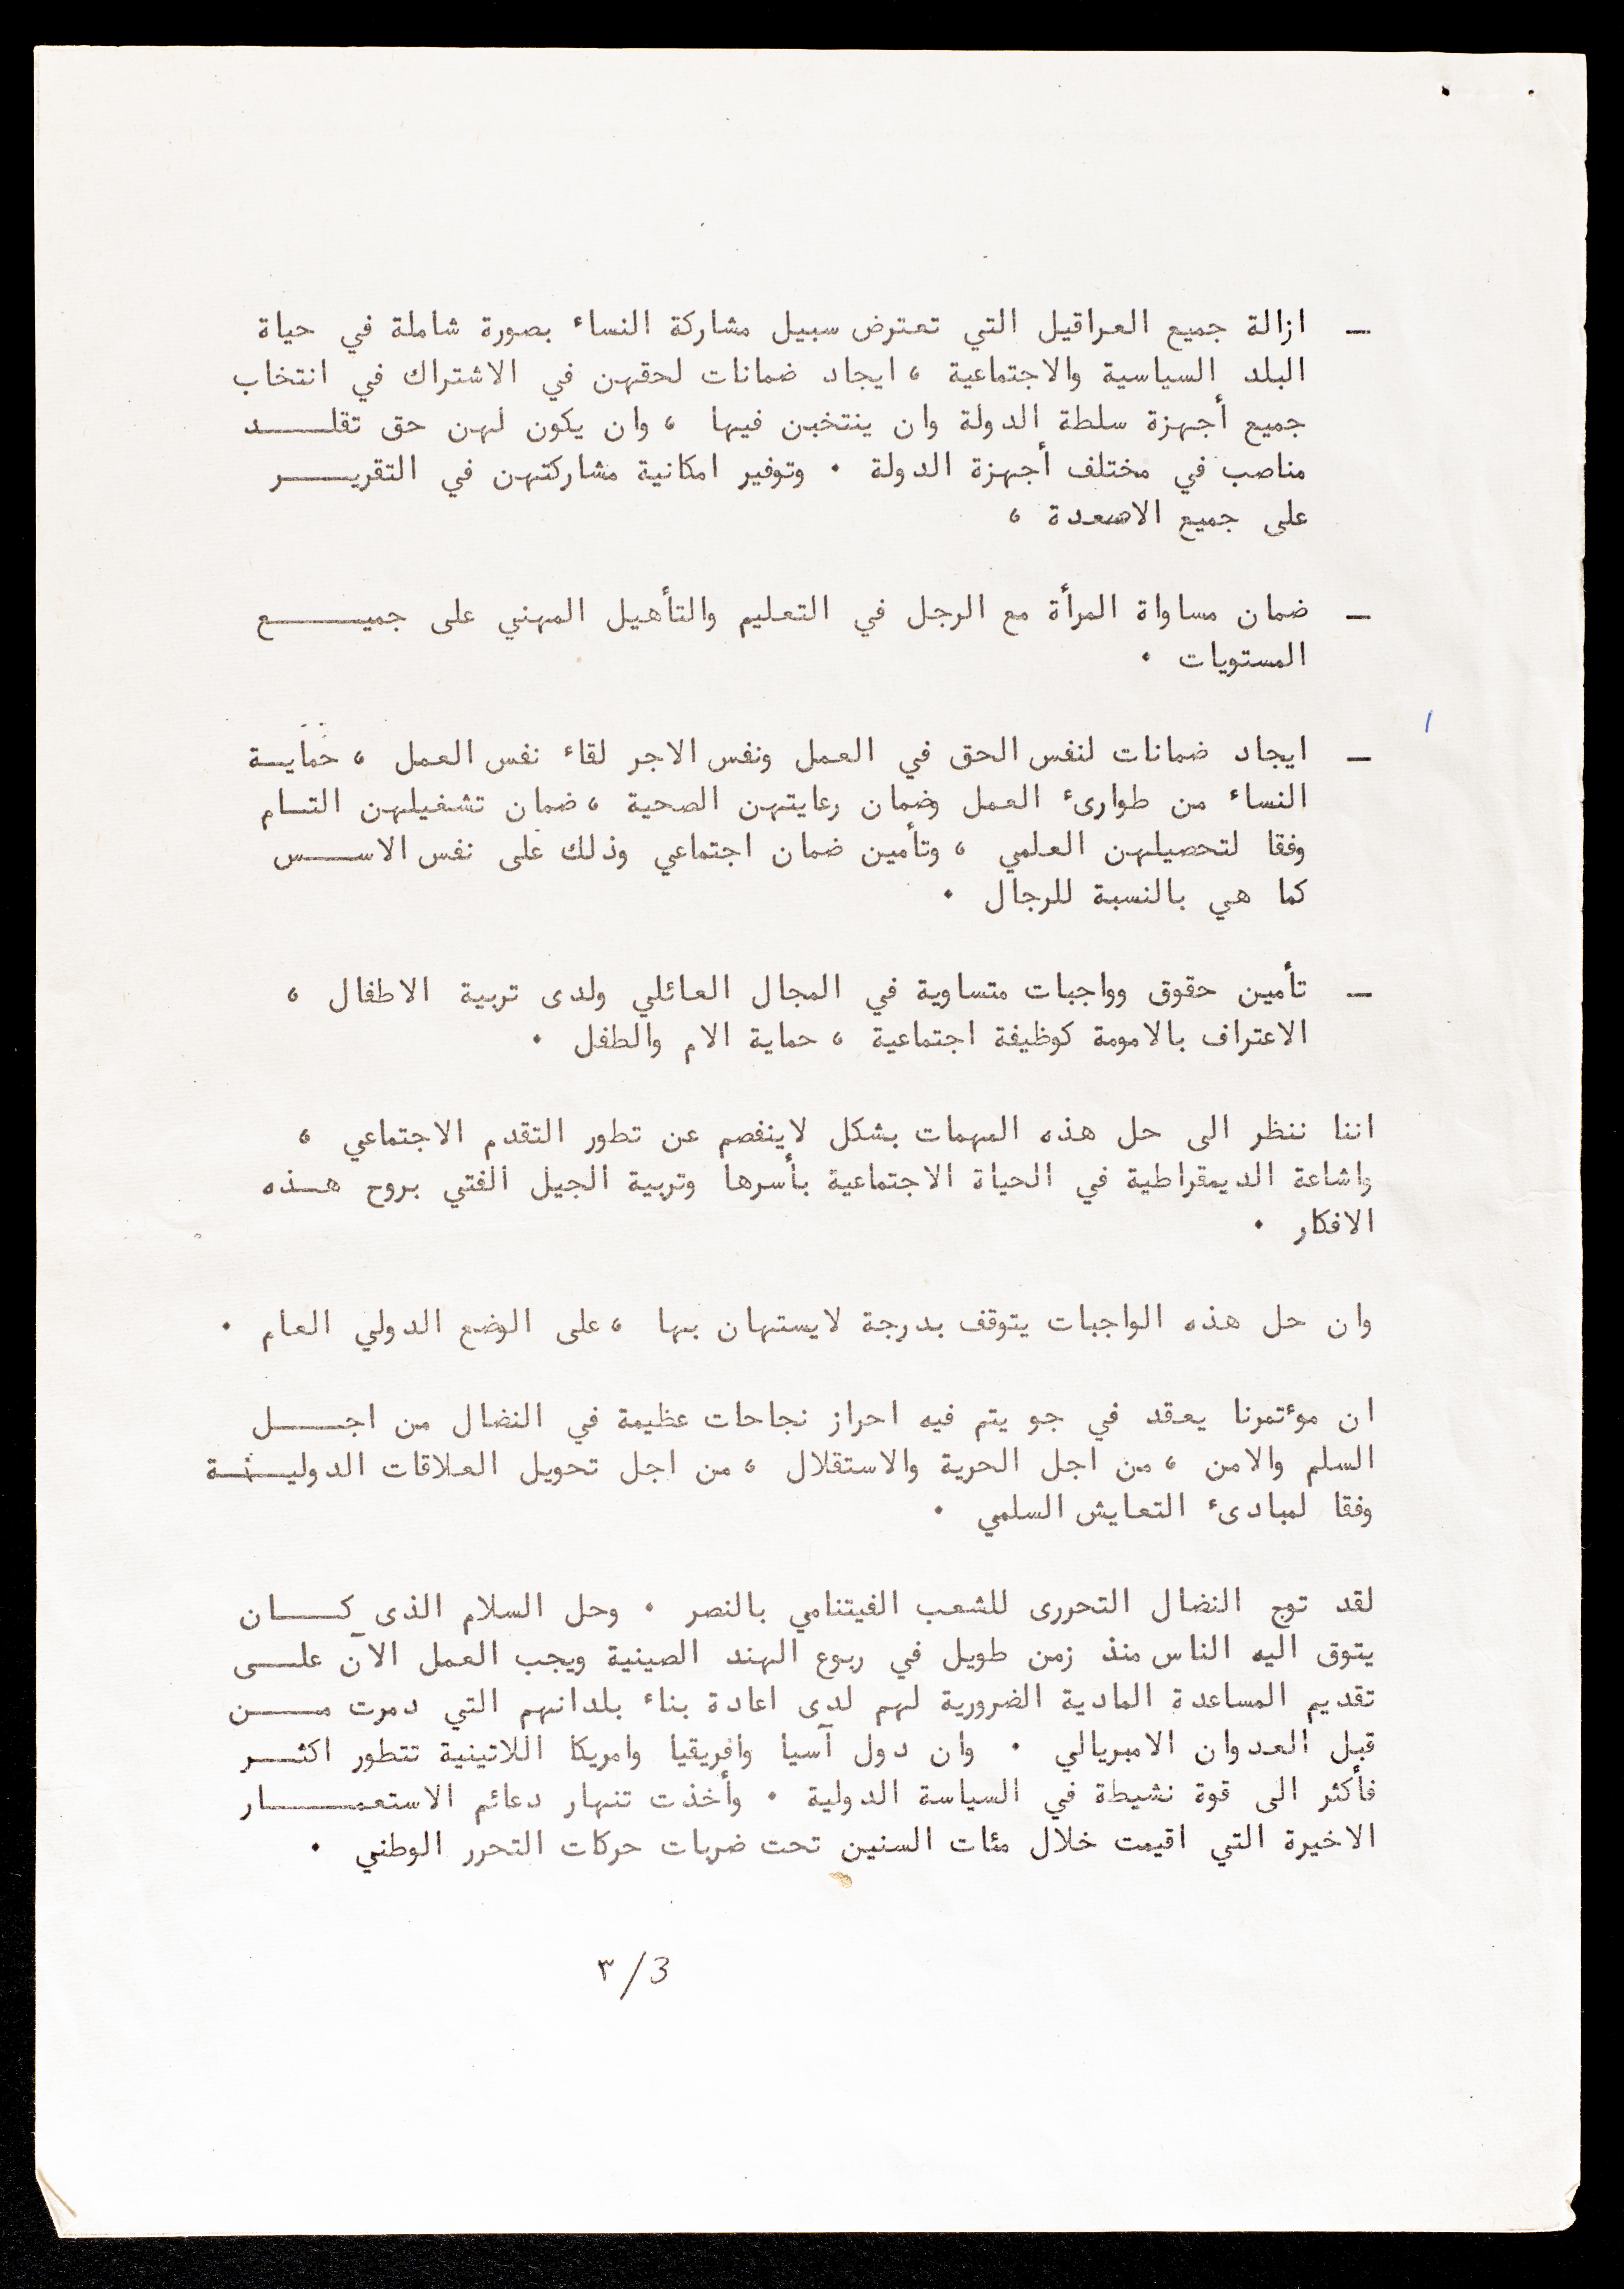 — ازالة جميع العراقيل التي تعترض سبيل مشاركة النساء بصورة شاملة في حياة
البلد السياسية والاجتماعية ، ايجاد ضمانات لحقهن في الاشتراك في انتخاب
جميع أجهزة سلطة الدولة وان ينتخبن فيها ، وان يكون لهن حق تقلـــــد
مناصب في مختلف أجهزة الدولة . وتوفير امكانية مشاركتهن في التقريـــــر
على جميع الاصعدة ،
— ضمان مساواة المرأة مع الرجل في التعليم والتأهيل المهني على جميـــــع
المستويات .
— ايجاد ضمانات لنفس الحق في العمل ونفس الاجر لقاء نفس العمل ، حمايـة
النساء من طوارئ العمل وضمان رعايتهن الصحية ، ضمان تشغيلهن التـام
وفقا لتحصيلهن العلمي ، وتأمين ضمان اجتماعي وذلك على نفس الاســـس
كما هي بالنسبة للرجال .
— تأمين حقوق وواجبات متساوية في المجال العائلي ولدى تربية الاطفال ،
الاعتراف بالامومة كوظيفة اجتماعية ، حماية الام والطفل .
اننا ننظر الى حل هذه المهمات بشكل لاينفصم عن تطور التقدم الاجتماعي ،
واشاعة الديمقراطية في الحياة الاجتماعية بأسرها وتربية الجيل الفتي بروح هـذه
الافكار .
وان حل هذه الواجبات يتوقف بدرجة لايستهان بها ، على الوضع الدولي العام .
ان موءتمرنا يعقد في جو يتم فيه احراز نجاحات عظيمة في النضال من اجــــل
السلم والامن ، من اجل الحرية والاستقلال ، من اجل تحويل العلاقات الدوليـــة
وفقا لمبادئ التعايش السلمي .
لقد توج النضال التحررى للشعب الفيتنامي بالنصر . وحل السلام الذى كــــان
يتوق اليه الناس منذ زمن طويل في ربوع الهند الصينية ويجب العمل الآن علــى
تقديم المساعدة المادية الضرورية لهم لدى اعادة بناء بلدانهم التي دمرت مــــن
قبل العدوان الامبريالي . وان دول آسيا وافريقيا وامريكا اللاتينية تتطور اكثـــر
فأكثر الى قوة نشيطة في السياسة الدولية . وأخذت تنهار دعائم الاستعمـــــار
الاخيرة التي اقيمت خلال مئات السنين تحت ضربات حركات التحرر الوطني .
٣/3